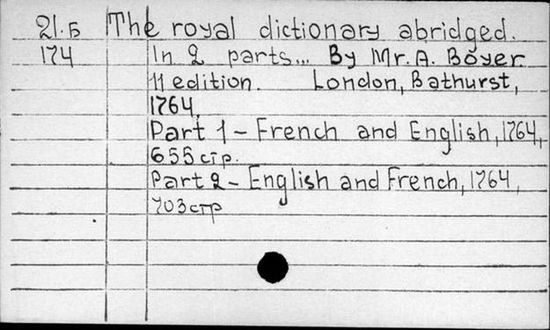 21.Б The royal dictionary abridged.
174 In 2 parts... By Mr. A. Boyer
11 edition. London, Bathurst,
1764,
Part 1 - French and English, 1764,
655 стр.
Part 2 - English and French, 1764,
703 стр